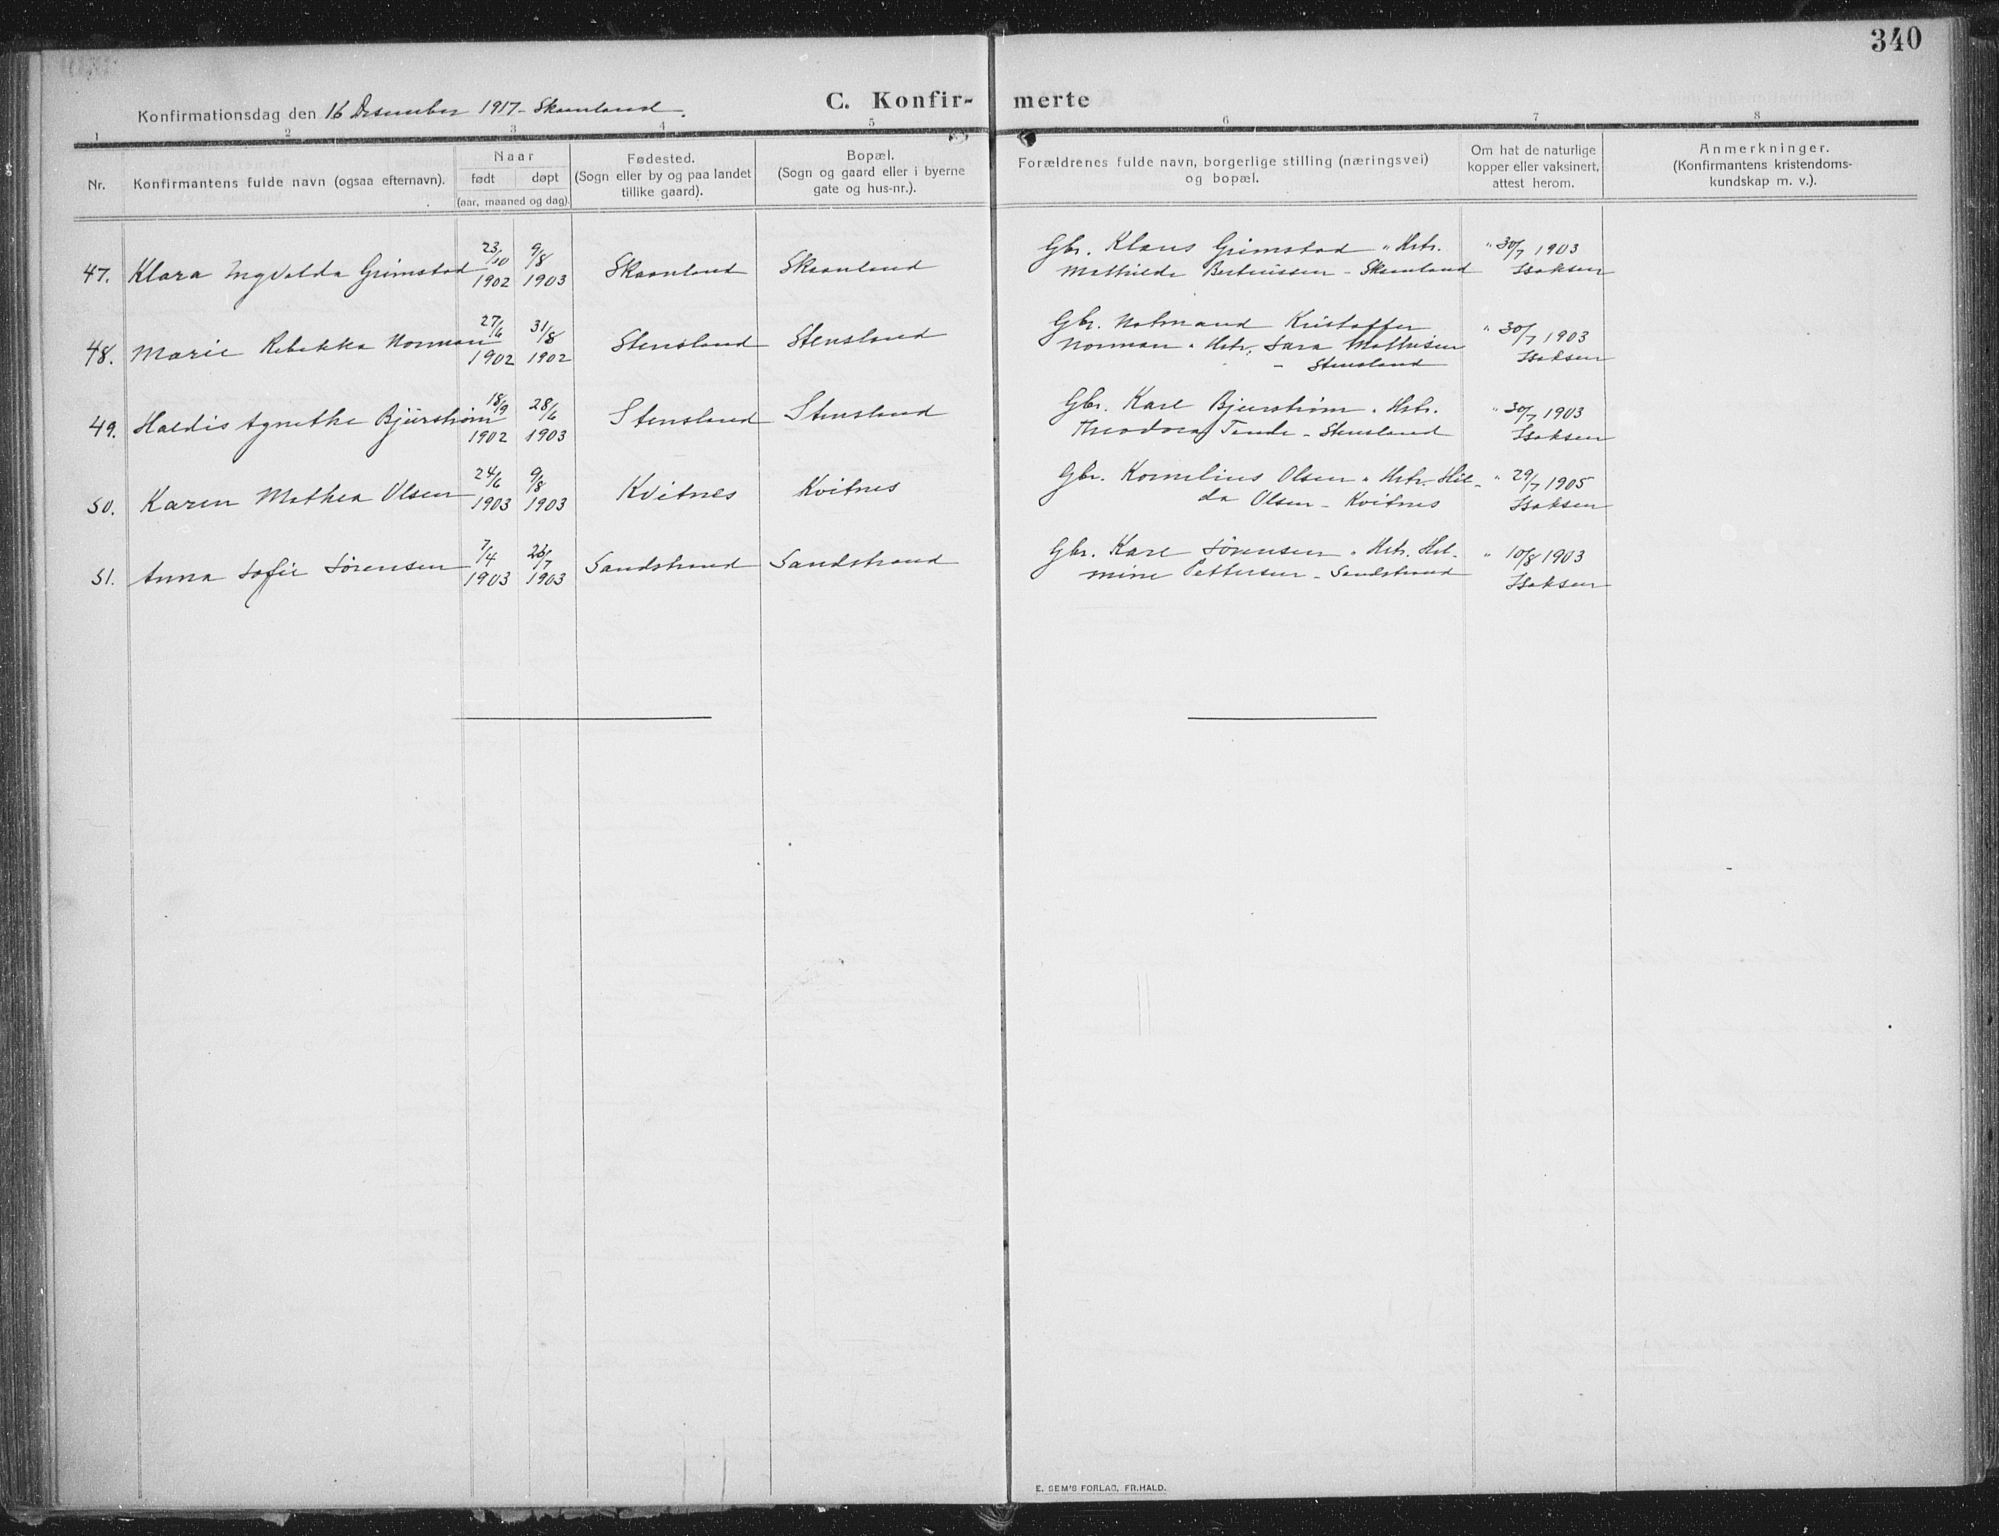 340
Konfirmationsdag den 16 Desember 1917 - Skaanland.
C. Konfir- merte
1 2 3 4 5 6 7 8
Nr.
Konfirmantens fulde navn (ogsaa efternavn).
Naar
født døpt
(aar, maaned og dag).
Fødested.
(Sogn eller by og paa landet
tillike gaard).
Bopæl.
(Sogn og gaard eller i byerne
gate og hus-nr.).
Forældrenes fulde navn, borgerlige stilling (næringsvei)
og bopæl.
Om hat de naturlige
kopper eller vaksinert,
attest herom.
Anmerkninger.
(Konfirmantens kristendoms-
kundskap m. v.).
47. Klara Ingvalda Grimstad 23/10 1902 9/8 1903 Skaanland Skaanland
Gbr. Klaus Grimstad " Hstr.
Mathilde Berteussen - Skaanland
" 30/7 1903
Isaksen
48. Marie Rebekka Norman 27/6 1902 31/8 1902 Stensland Stensland
Gbr. Kristoffer
Norman " Hstr. Sara Mathisen
- Stensland
" 30/7 1903
Isaksen
49. Haldis Agnethe Bjurstrøm 18/9 1902 28/6 1903 Stensland Stensland
Gbr. Karl Bjurstrøm " Hstr.
Theodora - Stensland
" 30/7 1903
Isaksen
50. Karen Mathea Olsen 24/6 1903 9/8 1903 Kvitnes Kvitnes
Gbr. Kornelius Olsen " Hstr. Hil-
da Olsen - Kvitnes
" 29/7 1905
Isaksen
51. Anna Sofie Sørensen 7/4 1903 26/7 1903 Sandstrand Sandstrand
Gbr. Karl Sørensen " Hstr. Hel-
mine Pettersen - Sandstrand
" 10/8 1903
Isaksen
E. SEM'S FORLAG, FR.HALD.